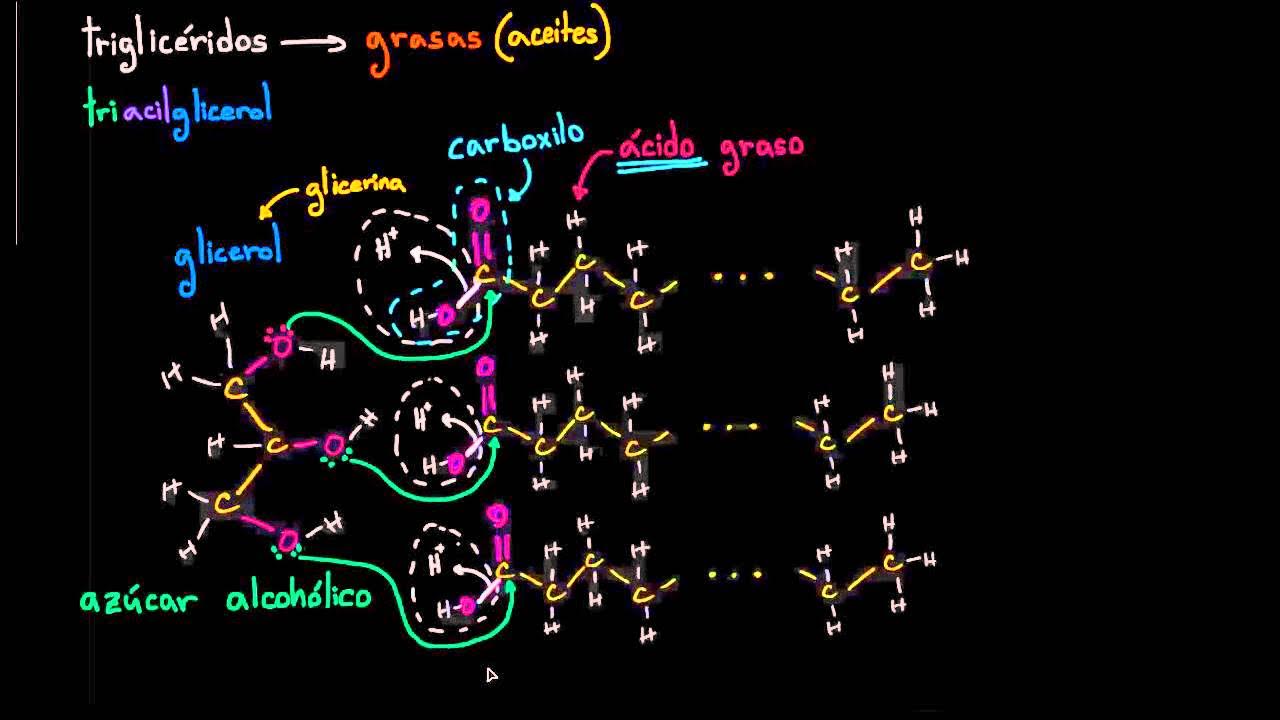 triglicéridos → grasas (aceites)
triacilglicerol
carboxilo
ácido graso
glicerina
glicerol
O H
H⁺ C H H H H C H
H C C H C
H O C H C C H
H O H H H H
C H O H
H H⁺ C H H H C H
H C O C C C C H
H H O H H H H
H C O H
H H⁺ H H H H C H
O C C C C C H
H O H H H H
azúcar alcohólico